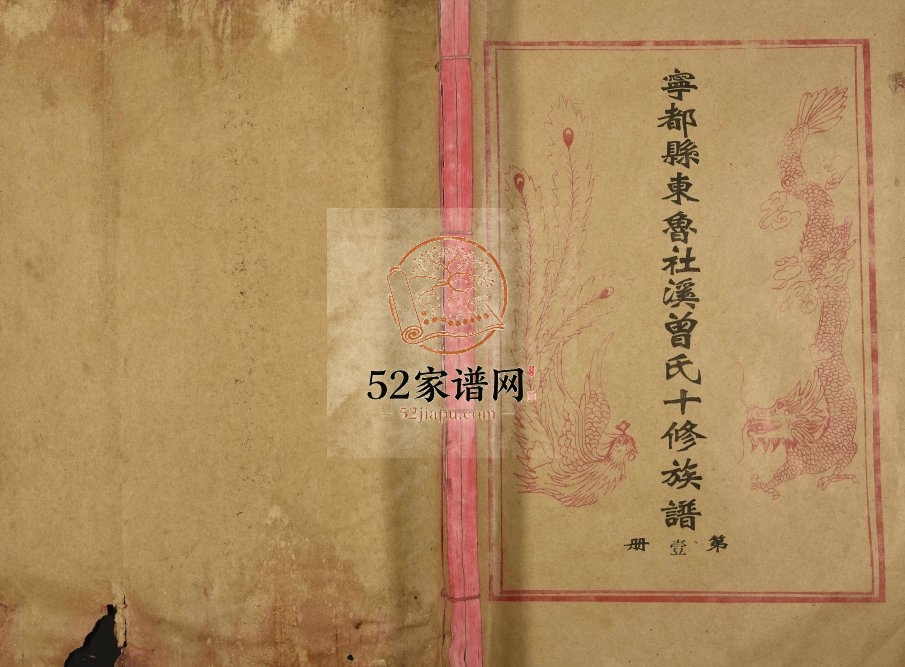 寧都縣東魯社溪曾氏十修族譜
第壹册
52家谱网
52jiapu.com